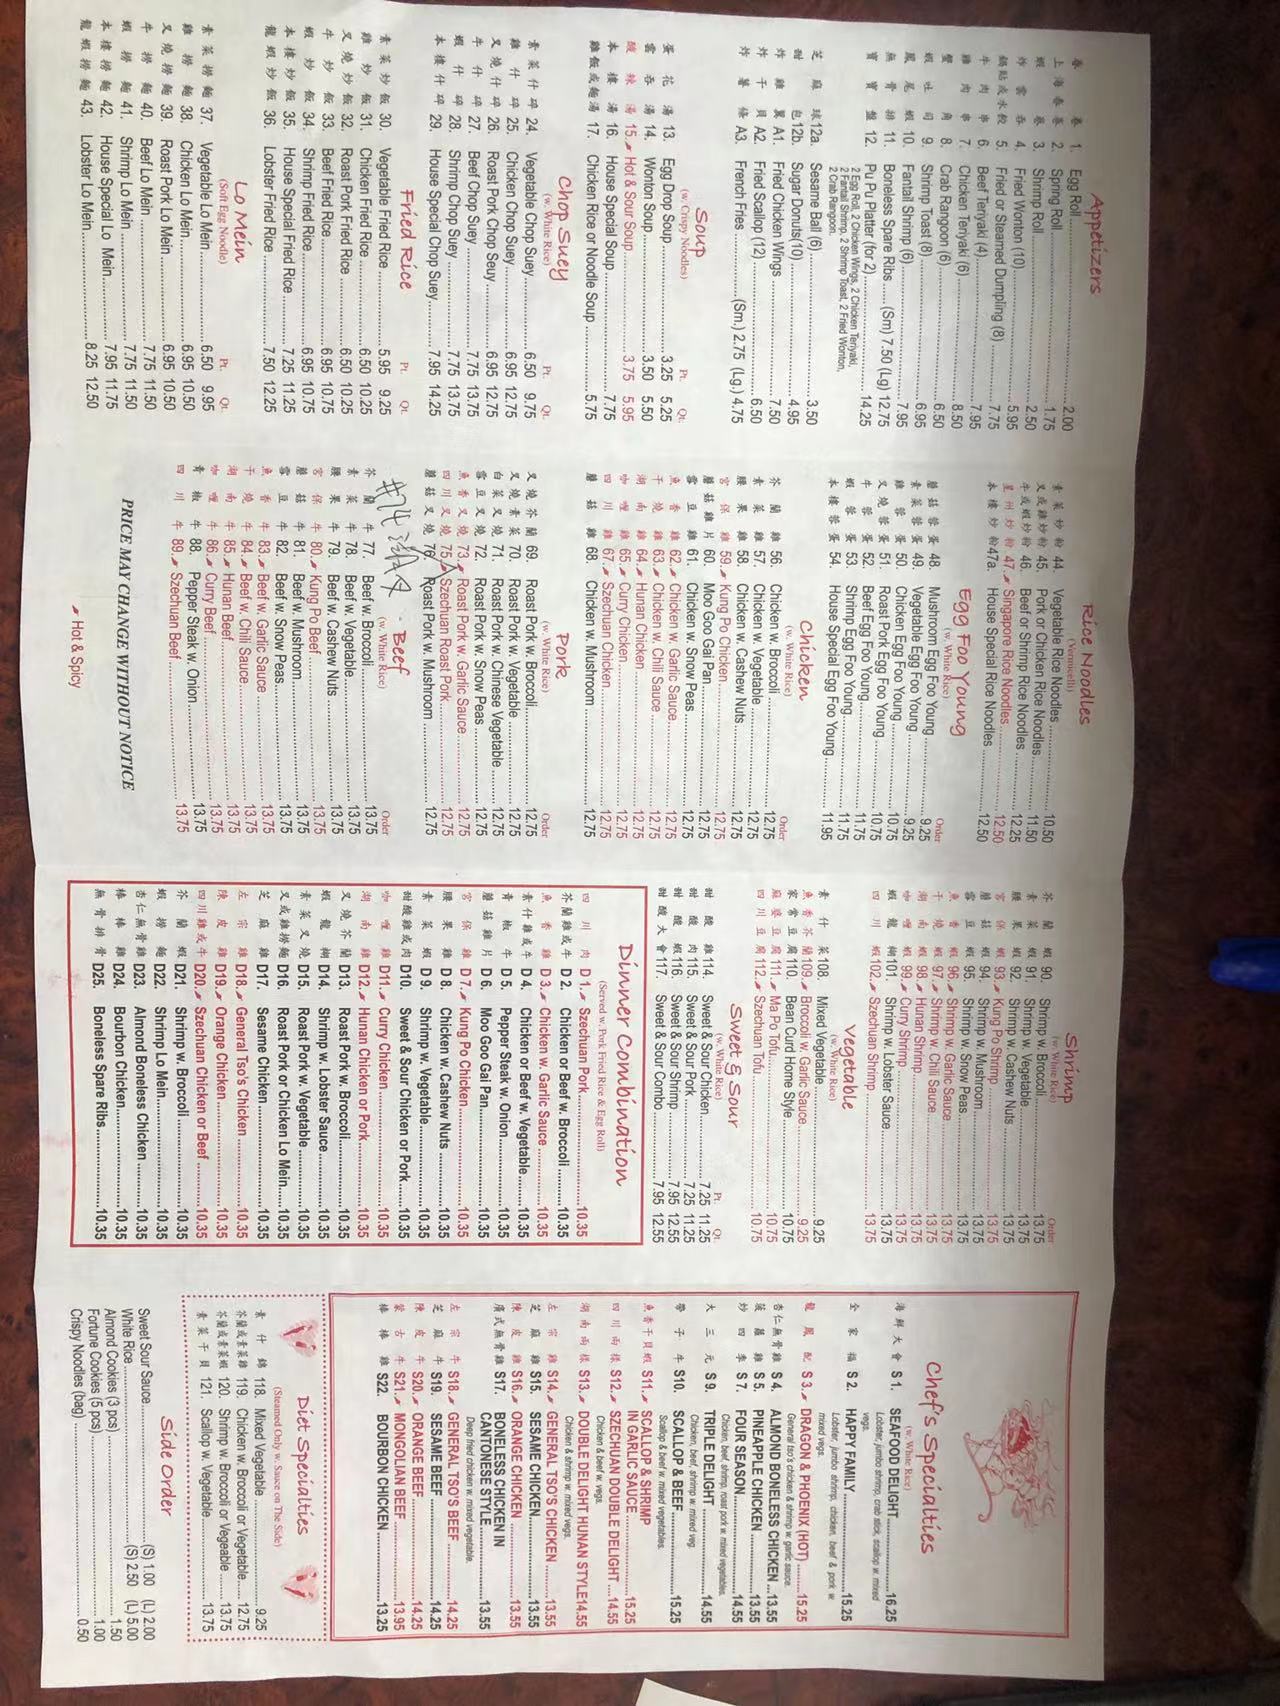 Appetizers
春 卷 1. Egg Roll 2.00
上 海 春 卷 2. Spring Roll 1.75
蝦 卷 3. Shrimp Roll 2.50
炸 雲 吞 4. Fried Wonton (10) 5.95
鍋貼或水餃 5. Fried or Steamed Dumpling (8) 7.75
牛 肉 串 6. Beef Teriyaki (4) 7.95
雞 肉 串 7. Chicken Teriyaki (6) 8.50
蟹 角 8. Crab Rangoon (6) 6.50
蝦 吐 司 9. Shrimp Toast (8) 6.95
鳳 尾 蝦 10. Fantail Shrimp (6) 7.95
無 骨 排 11. Boneless Spare Ribs (Sm) 7.50 (Lg) 12.75
寶 寶 盤 12. Pu Pu Platter (for 2) 14.25
2 Egg Roll, 2 Chicken Wings, 2 Chicken Teriyaki,
2 Fantail Shrimp, 2 Shrimp Toast, 2 Fried Wonton,
2 Crab Rangoon.
芝 麻 球 12a. Sesame Ball (6) 3.50
甜 包 12b. Sugar Donuts(10) 4.95
炸 雞 翼 A1. Fried Chicken Wings 7.50
炸 干 貝 A2. Fried Scallop (12) 6.50
炸 薯 條 A3. French Fries (Sm.) 2.75 (Lg.) 4.75
Soup
(w. Crispy Noodles) Pt. Qt.
蛋 花 湯 13. Egg Drop Soup 3.25 5.25
雲 吞 湯 14. Wonton Soup 3.50 5.50
酸 辣 湯 15. Hot & Sour Soup 3.75 5.95
本 樓 湯 16. House Special Soup 7.75
雞飯或麵湯 17. Chicken Rice or Noodle Soup 5.75
Chop Suey
(w. White Rice) Pt. Qt.
素 菜 什 碎 24. Vegetable Chop Suey 6.50 9.75
雞 什 碎 25. Chicken Chop Suey 6.95 12.75
叉 燒 什 碎 26. Roast Pork Chop Seuy 6.95 12.75
牛 什 碎 27. Beef Chop Suey 7.75 13.75
蝦 什 碎 28. Shrimp Chop Suey 7.75 13.75
本 樓 什 碎 29. House Special Chop Suey 7.95 14.25
Fried Rice
Pt. Qt.
素 菜 炒 飯 30. Vegetable Fried Rice 5.95 9.25
雞 炒 飯 31. Chicken Fried Rice 6.50 10.25
叉 燒 炒 飯 32. Roast Pork Fried Rice 6.50 10.25
牛 炒 飯 33. Beef Fried Rice 6.95 10.75
蝦 炒 飯 34. Shrimp Fried Rice 6.95 10.75
本 樓 炒 飯 35. House Special Fried Rice 7.25 11.25
龍 蝦 炒 飯 36. Lobster Fried Rice 7.50 12.25
Lo Mein
(Soft Egg Noodle) Pt. Qt.
素 菜 撈 麵 37. Vegetable Lo Mein 6.50 9.95
雞 撈 麵 38. Chicken Lo Mein 6.95 10.50
叉 燒 撈 麵 39. Roast Pork Lo Mein 6.95 10.50
牛 撈 麵 40. Beef Lo Mein 7.75 11.50
蝦 撈 麵 41. Shrimp Lo Mein 7.75 11.50
本 樓 撈 麵 42. House Special Lo Mein 7.95 11.75
龍 蝦 撈 麵 43. Lobster Lo Mein 8.25 12.50
Rice Noodles
(Vermicelli)
素 菜 炒 粉 44. Vegetable Rice Noodles 10.50
叉或雞炒粉 45. Pork or Chicken Rice Noodles 11.50
牛或蝦炒粉 46. Beef or Shrimp Rice Noodles 12.25
星 州 炒 粉 47. Singapore Rice Noodles 12.50
本 樓 炒 粉 47a. House Special Rice Noodles 12.50
Egg Foo Young
(w. White Rice) Order
蘑 菇 蓉 蛋 48. Mushroom Egg Foo Young 9.25
素 菜 蓉 蛋 49. Vegetable Egg Foo Young 9.25
雞 蓉 蛋 50. Chicken Egg Foo Young 10.75
叉 燒 蓉 蛋 51. Roast Pork Egg Foo Young 10.75
牛 蓉 蛋 52. Beef Egg Foo Young 11.75
蝦 蓉 蛋 53. Shrimp Egg Foo Young 11.75
本 樓 蓉 蛋 54. House Special Egg Foo Young 11.95
Chicken
(w. White Rice) Order
芥 蘭 雞 56. Chicken w. Broccoli 12.75
素 菜 雞 57. Chicken w. Vegetable 12.75
腰 果 雞 58. Chicken w. Cashew Nuts 12.75
宮 保 雞 59. Kung Po Chicken 12.75
蘑 菇 雞 片 60. Moo Goo Gai Pan 12.75
雪 豆 雞 61. Chicken w. Snow Peas 12.75
魚 香 雞 62. Chicken w. Garlic Sauce 12.75
干 燒 雞 63. Chicken w. Chili Sauce 12.75
湖 南 雞 64. Hunan Chicken 12.75
咖 喱 雞 65. Curry Chicken 12.75
四 川 雞 67. Szechuan Chicken 12.75
蘑 菇 雞 68. Chicken w. Mushroom 12.75
Pork
(w. White Rice) Order
叉 燒 芥 蘭 69. Roast Pork w. Broccoli 12.75
叉 燒 素 菜 70. Roast Pork w. Vegetable 12.75
白 菜 叉 燒 71. Roast Pork w. Chinese Vegetable 12.75
雪 豆 叉 燒 72. Roast Pork w. Snow Peas 12.75
魚 香 叉 燒 73. Roast Pork w. Garlic Sauce 12.75
四 川 叉 燒 75. Szechuan Roast Pork 12.75
蘑 菇 叉 燒 76. Roast Pork w. Mushroom 12.75
#74
Beef
(w. White Rice) Order
芥 蘭 牛 77. Beef w. Broccoli 13.75
素 菜 牛 78. Beef w. Vegetable 13.75
腰 果 牛 79. Beef w. Cashew Nuts 13.75
宮 保 牛 80. Kung Po Beef 13.75
蘑 菇 牛 81. Beef w. Mushroom 13.75
雪 豆 牛 82. Beef w. Snow Peas 13.75
魚 香 牛 83. Beef w. Garlic Sauce 13.75
干 燒 牛 84. Beef w. Chili Sauce 13.75
湖 南 牛 85. Hunan Beef 13.75
咖 喱 牛 86. Curry Beef 13.75
青 椒 牛 88. Pepper Steak w. Onion 13.75
四 川 牛 89. Szechuan Beef 13.75
PRICE MAY CHANGE WITHOUT NOTICE
Hot & Spicy
Shrimp
(w. White Rice) Order
芥 蘭 蝦 90. Shrimp w. Broccoli 13.75
素 菜 蝦 91. Shrimp w. Vegetable 13.75
腰 果 蝦 92. Shrimp w. Cashew Nuts 13.75
宮 保 蝦 93. Kung Po Shrimp 13.75
蘑 菇 蝦 94. Shrimp w. Mushroom 13.75
雪 豆 蝦 95. Shrimp w. Snow Peas 13.75
魚 香 蝦 96. Shrimp w. Garlic Sauce 13.75
干 燒 蝦 97. Shrimp w. Chili Sauce 13.75
湖 南 蝦 98. Hunan Shrimp 13.75
咖 喱 蝦 99. Curry Shrimp 13.75
蝦 龍 糊 101. Shrimp w. Lobster Sauce 13.75
四 川 蝦 102. Szechuan Shrimp 13.75
Vegetable
(w. White Rice)
素 什 菜 108. Mixed Vegetable 9.25
魚 香 芥 蘭 109. Broccoli w. Garlic Sauce 9.25
家 常 豆 腐 110. Bean Curd Home Style 10.75
麻 婆 豆 腐 111. Ma Po Tofu 10.75
四 川 豆 腐 112. Szechuan Tofu 10.75
Sweet & Sour
(w. White Rice) Pt. Qt.
甜 酸 雞 114. Sweet & Sour Chicken 7.25 11.25
甜 酸 肉 115. Sweet & Sour Pork 7.25 11.25
甜 酸 蝦 116. Sweet & Sour Shrimp 7.95 12.55
甜 酸 大 會 117. Sweet & Sour Combo 7.95 12.55
Dinner Combination
(Served w. Pork Fried Rice & Egg Roll)
四 川 肉 D 1. Szechuan Pork 10.35
芥蘭雞或牛 D 2. Chicken or Beef w. Broccoli 10.35
魚 香 雞 D 3. Chicken w. Garlic Sauce 10.35
素什雞或牛 D 4. Chicken or Beef w. Vegetable 10.35
青 椒 牛 D 5. Pepper Steak w. Onion 10.35
蘑 菇 雞 片 D 6. Moo Goo Gai Pan 10.35
宮 保 雞 D 7. Kung Po Chicken 10.35
腰 果 雞 D 8. Chicken w. Cashew Nuts 10.35
素 菜 蝦 D 9. Shrimp w. Vegetable 10.35
甜酸雞或肉 D10. Sweet & Sour Chicken or Pork 10.35
咖 喱 雞 D11. Curry Chicken 10.35
湖 南 雞 D12. Hunan Chicken or Pork 10.35
叉 燒 芥 蘭 D13. Roast Pork w. Broccoli 10.35
蝦 龍 糊 D14. Shrimp w. Lobster Sauce 10.35
素 菜 叉 燒 D15. Roast Pork w. Vegetable 10.35
叉或雞撈麵 D16. Roast Pork or Chicken Lo Mein 10.35
芝 麻 雞 D17. Sesame Chicken 10.35
左 宗 雞 D18. General Tso's Chicken 10.35
陳 皮 雞 D19. Orange Chicken 10.35
四川雞或牛 D20. Szechuan Chicken or Beef 10.35
芥 蘭 蝦 D21. Shrimp w. Broccoli 10.35
蝦 撈 麵 D22. Shrimp Lo Mein 10.35
杏仁無骨雞 D23. Almond Boneless Chicken 10.35
棒 棒 雞 D24. Bourbon Chicken 10.35
無 骨 排 骨 D25. Boneless Spare Ribs 10.35
Chef's Specialties
(w. White Rice)
海 鮮 大 會 S 1. SEAFOOD DELIGHT 16.25
Lobster, jumbo shrimp, crab stick, scallop w. mixed
vegs.
全 家 福 S 2. HAPPY FAMILY 15.25
Lobster, jumbo shrimp, chicken, beef & pork w.
mixed vegs.
龍 鳳 配 S 3. DRAGON & PHOENIX (HOT) 15.25
General tso's chicken & shrimp w. garlic sauce.
杏仁無骨雞 S 4. ALMOND BONELESS CHICKEN 13.55
菠 蘿 雞 S 5. PINEAPPLE CHICKEN 13.55
炒 四 季 S 7. FOUR SEASON 14.55
Chicken, beef, shrimp, roast pork w. mixed vegetables.
大 三 元 S 9. TRIPLE DELIGHT 14.55
Chicken, beef, shrimp w. mixed veg.
帶 子 牛 S10. SCALLOP & BEEF 15.25
Scallop & beef w. mixed vegetables.
魚香干貝蝦 S11. SCALLOP & SHRIMP
IN GARLIC SAUCE 15.25
四 川 兩 樣 S12. SZECHUAN DOUBLE DELIGHT 14.55
Chicken & beef w. vegs.
湖 南 兩 樣 S13. DOUBLE DELIGHT HUNAN STYLE 14.55
Chicken & shrimp w. mixed vegs.
左 宗 雞 S14. GENERAL TSO'S CHICKEN 13.55
芝 麻 雞 S15. SESAME CHICKEN 13.55
陳 皮 雞 S16. ORANGE CHICKEN 13.55
廣式無骨雞 S17. BONELESS CHICKEN IN
CANTONESE STYLE 13.55
Deep fried chicken w. mixed vegetable.
左 宗 牛 S18. GENERAL TSO'S BEEF 14.25
芝 麻 牛 S19. SESAME BEEF 14.25
陳 皮 牛 S20. ORANGE BEEF 14.25
蒙 古 牛 S21. MONGOLIAN BEEF 13.95
棒 棒 雞 S22. BOURBON CHICKEN 13.25
Diet Specialties
(Steamed Only w. Sauce on The Side)
素 什 錦 118. Mixed Vegetable 9.25
芥蘭或素菜雞 119. Chicken w. Broccoli or Vegetable 12.75
芥蘭或素菜蝦 120. Shrimp w. Broccoli or Vegeable 13.75
素 菜 干 貝 121. Scallop w. Vegetable 13.75
Side Order
Sweet Sour Sauce (S) 1.00 (L) 2.00
White Rice (S) 2.50 (L) 5.00
Almond Cookies (3 pcs) 1.50
Fortune Cookies (5 pcs) 1.00
Crispy Noodles (bag) 0.50